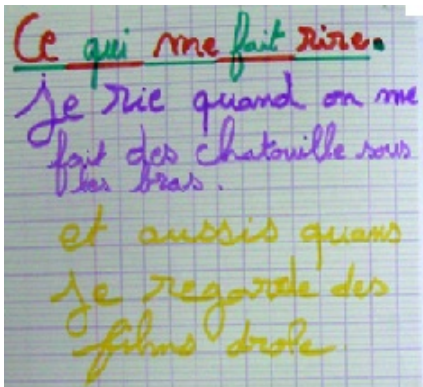 Ce qui me fait rire.
je rie quand on me
fait des chatouille sous
les bras.
et aussis quans
je regarde des
films drole